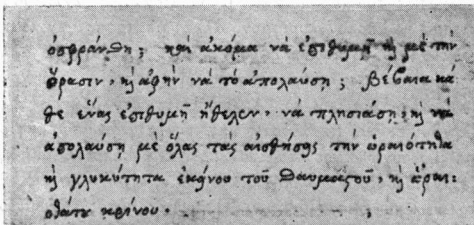 ὀσφράνθη; καὶ ἀκόμα νὰ ἐπιθυμῇ καὶ μὲ τὴν
ὅρασιν, καὶ ἀφὴν νὰ τὸ ἀπολαύσῃ; βέβαια κά
θε ἕνας ἐπιθυμῇ ἤθελεν, νὰ πλησιάσῃ, καὶ νὰ
ἀπολαύσῃ μὲ ὅλας τὰς αἰσθήσης τὴν ὡραιότητα
καὶ γλυκύτητα ἐκήνου τοῦ θαυμαςοῦ, καὶ ὡραι:
οτάτου κρίνου.